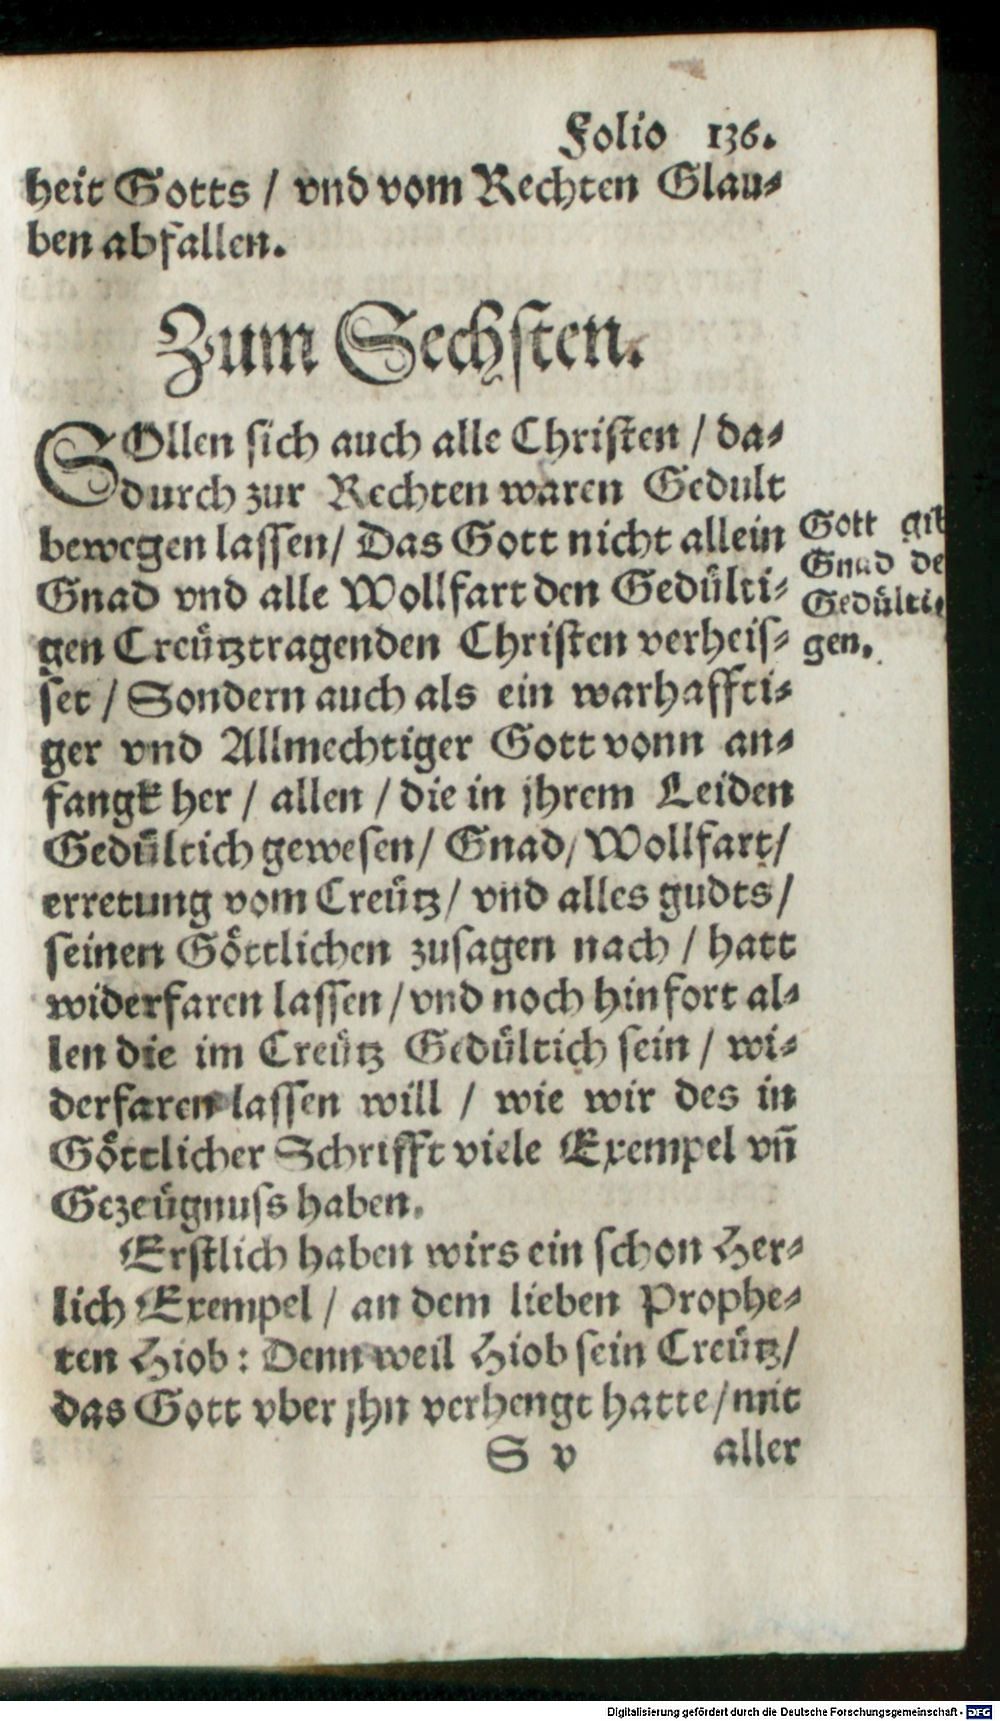 Folio 136.
heit Gotts / vnd vom Rechten Glau-
ben abfallen.
Zum Sechsten.
SOllen sich auch alle Christen / da-
durch zur Rechten waren Gedult
bewegen lassen / Das Gott nicht allein
Gnad vnd alle Wollfart den Gedülti-
gen Creütztragenden Christen verheis-
set / Sondern auch als ein warhaffti-
ger vnd Allmechtiger Gott vonn an-
fangk her / allen / die in jhrem Leiden
Gedültich gewesen / Gnad / Wollfart /
erretung vom Creütz / vnd alles gudts /
seinen Göttlichen zusagen nach / hatt
widerfaren lassen / vnd noch hinfort al-
len die im Creütz Gedültich sein / wi-
derfaren lassen will / wie wir des in
Göttlicher Schrifft viele Exempel vñ
Gezeügnuss haben.
Erstlich haben wirs ein schon Her-
lich Exempel / an dem lieben Prophe-
ten Hiob : Denn weil Hiob sein Creütz /
das Gott vber jhn verhengt hatte / mit
S v aller
Gott git
Gnad de
Gedülti-
gen.
Digitalisierung gefördert durch die Deutsche Forschungsgemeinschaft - DFG